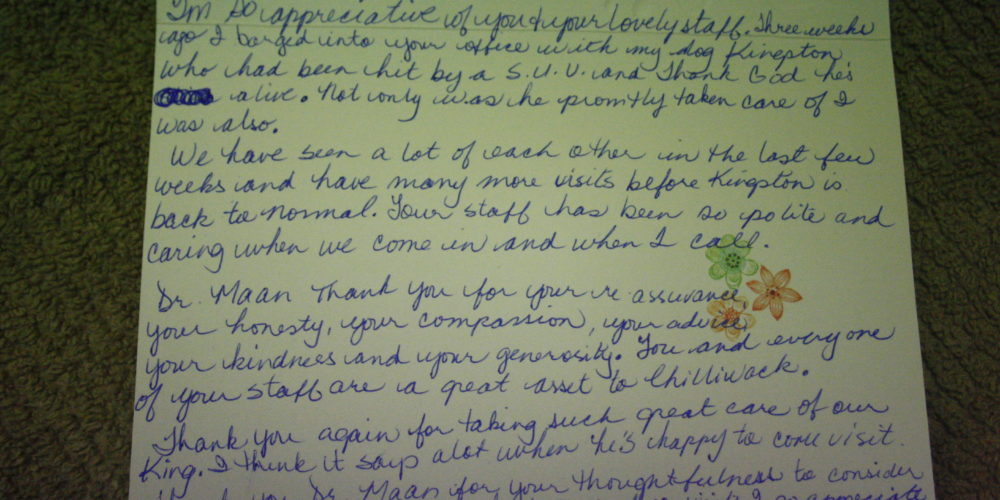 I'm so appreciative of you & your lovely staff. Three weeks
ago I barged into your office with my dog Kingston
who had been hit by a S.U.V. and Thank God he's
alive. Not only was he promtly taken care of I
was also.
We have seen a lot of each other in the last few
weeks and have many more visits before Kingston is
back to normal. Your staff has been so polite and
caring when we come in and when I call.
Dr. Maan Thank you for your re assurance,
your honesty, your compassion, your advice,
your kindness and your generosity. You and every one
of your staff are a great asset to Chilliwack.
Thank you again for taking such great care of our
King. I think it says alot when he's happy to come visit.
Thank you Dr. Maan for your thoughtfulness to consider
I so appreciate